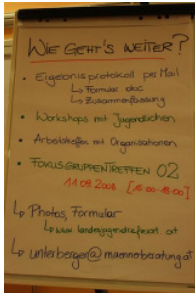 WIE GEHT'S WEITER?
• Ergebnisprotokoll per Mail
↳ Formular .doc
↳ Zusammenfassung
• Workshops mit Jugendlichen
• Arbeitstreffen mit Organisationen
• FOKUSGRUPPENTREFFEN 02
11.09.2008 [15:00-18:00]
↳ Photos, Formular
↳ www.landesjugendreferat.at
↳ unterberger@maennerberatung.at